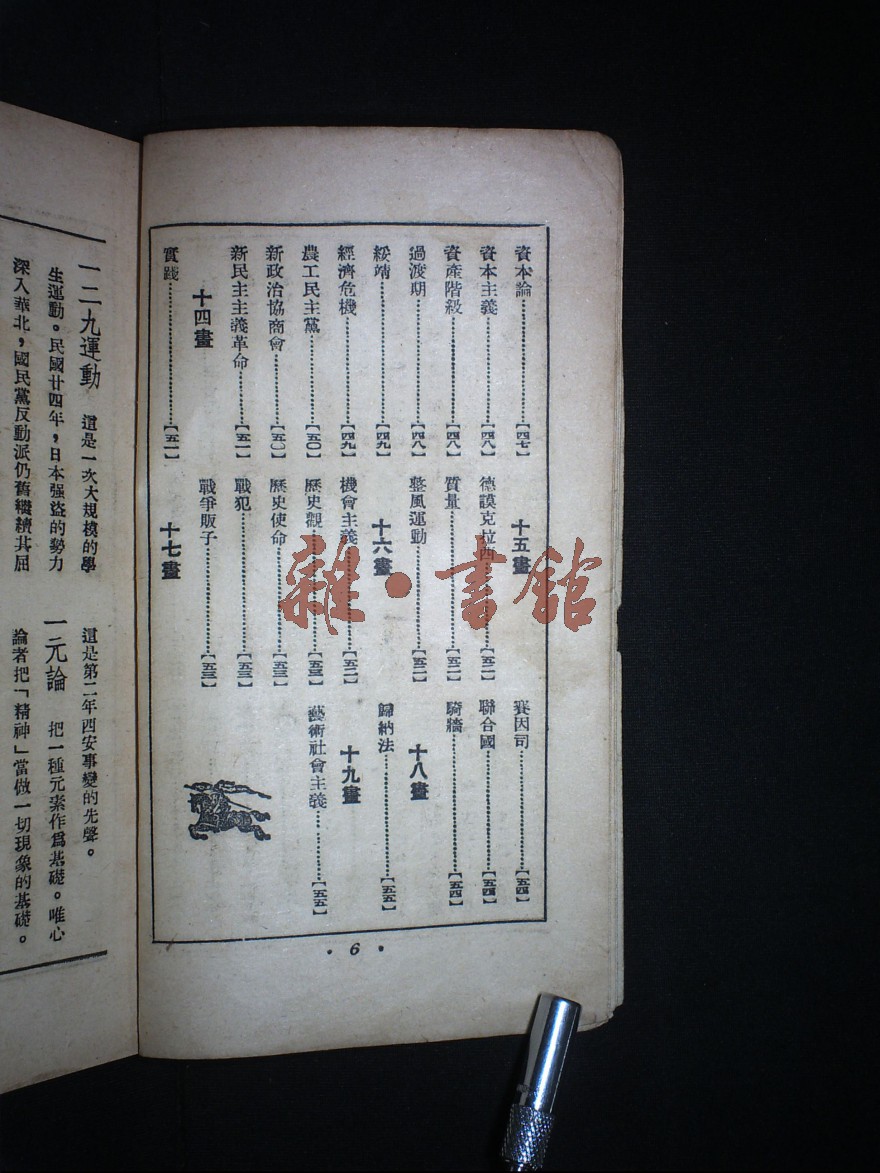 資本論……【四七】
資本主義……【四八】
資產階級……【四八】
過渡期……【四八】
綏靖……【四九】
經濟危機……【四九】
農工民主黨……【五〇】
新政治協商會……【五〇】
新民主主義革命……【五一】
十四畫
實踐……【五一】
十五畫
德謨克拉西……【五二】
質量……【五二】
整風運動……【五二】
十六畫
機會主義……【五二】
歷史觀……【五三】
歷史使命……【五三】
戰犯……【五三】
戰爭販子……【五三】
十七畫
賽因司……【五四】
聯合國……【五四】
騎牆……【五四】
十八畫
歸納法……【五五】
十九畫
藝術社會主義……【五五】
• 6 •
一二九運動 這是一次大規模的學
生運動。民國廿四年，日本强盜的勢力
深入華北，國民黨反動派仍舊繼續其屈
這是第二年西安事變的先聲。
一元論 把一種元素作爲基礎。唯心
論者把「精神」當做一切現象的基礎。
雜·書館